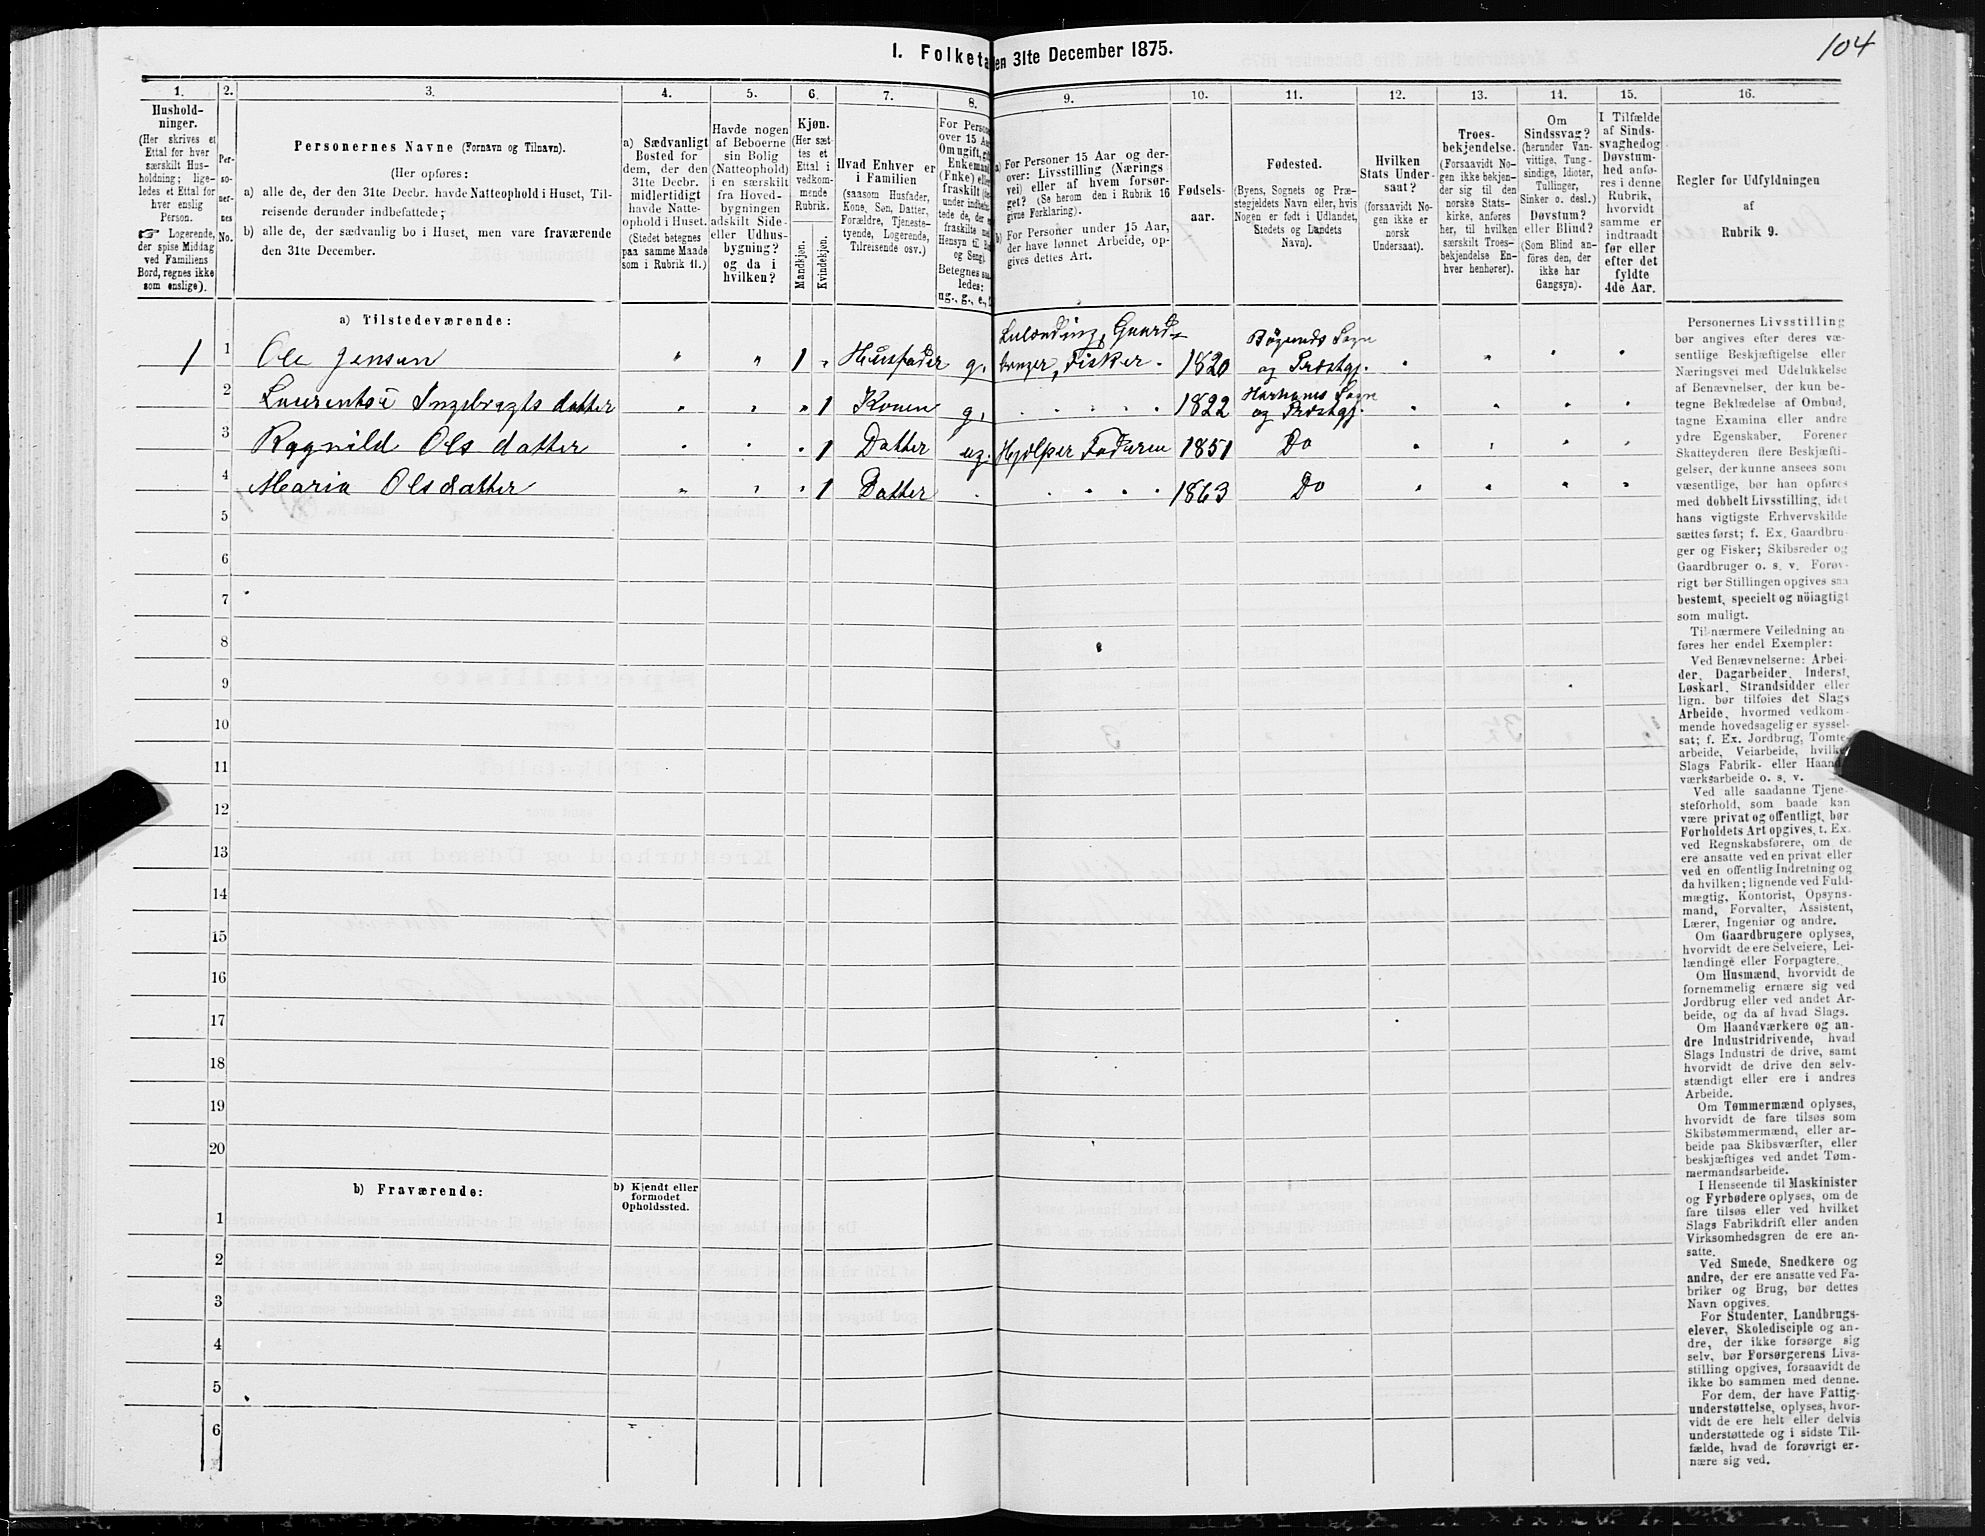 104
I. Folketa en 31te December 1875.
1. 2. 3. 4. 5. 6. 7. 8. 9. 10. 11. 12. 13. 14. 15. 16.
Hushold-
ninger.
(Her skrives et
Ettal for hver
særskilt Hus-
holdning; lige-
ledes et Ettal for
hver enslig
Person.
☞ Logerende,
der spise Middag
ved Familiens
Bord, regnes ikke
som enslige).
Per-
so-
ner-
nes
No.
Personernes Navne (Fornavn og Tilnavn).
(Her opføres:
a) alle de, der den 31te Decbr. havde Natteophold i Huset, Til-
reisende derunder indbefattede;
b) alle de, der sædvanlig bo i Huset, men vare fraværende
den 31te December.
a) Sædvanligt
Bosted for
dem, der den
31te Decbr.
midlertidigt
havde Natte-
ophold i Huset.
(Stedet betegnes
paa samme Maade
som i Rubrik 11.)
Havde nogen
af Beboerne
sin Bolig
(Natteophold)
i en særskilt
fra Hoved-
bygningen
adskilt Side-
eller Udhus-
bygning?
og da i
hvilken?
Kjøn.
(Her sæt-
tes et
Ettal i
vedkom-
mende
Rubrik.
Mandkjøn.
Kvindekjøn.
Hvad Enhver er
i Familien
(saasom Husfader,
Kone, Søn, Datter,
Forældre, Tjeneste-
tyende, Logerende,
Tilreisende osv.)
For Perso
over 15 Aa
Om ugift, gi
Enkemand
(Fnke) elle
fraskilt (de
under indbe
tede de, der e
fraskilte me
Hensyn til B
og Seng).
Betegnes sa
ledes:
ug., g., e.,
a) For Personer 15 Aar og der-
over: Livsstilling (Nærings
vei) eller af hvem forsør-
get? (Se herom den i Rubrik 16
givne Forklaring).
b) For Personer under 15 Aar,
der have lønnet Arbeide, op-
gives dettes Art.
Fødsels-
aar.
Fødested.
(Byens, Sognets og Præ-
stegjeldets Navn eller, hvis
Nogen er født i Udlandet,
Stedets og Landets
Navn).
Hvilken
Stats Under-
saat?
(forsaavidt No-
gen ikke er
norsk
Undersaat).
Troes-
bekjendelse.
(Forsaavidt No-
gen ikke bekjen-
der sig til den
norske Stats-
kirke, anføres
her, til hvilken
særskilt Troes-
bekjendelse En-
hver henhører).
Om
Sindssvag?
(herunder Van-
vittige, Tung-
sindige, Idioter,
Tullinger,
Sinker o. desl.)
Døvstum?
eller Blind?
(Som Blind an-
føres den, der
ikke har
Gangsyn).
I Tilfælde
af Sinds-
svaghed og
Døvstum-
hed anfø-
res i denne
Rubrik,
hvorvidt
samme er
indtraadt
før eller
efter det
fyldte
4de Aar.
Regler for Udfyldningen
af
Rubrik 9.
a) Tilstedeværende:
1 1 Ole Jensen " " 1 " Husfader g. Leilænding, Gaard-
bruger, Fisker. 1820 Sogn
og Præstgj.
2 Ingebrigts datter " " " 1 Konen g. 1822 Harhams Sogn
og Præstgj.
3 Ragnild Ols datter " " " 1 Datter ug. Hjelper Faderen 1851 Do
4 Maria Olsdatter " " " 1 Datter 1863 Do
5
6
7
8
9
10
11
12
13
14
15
16
17
18
19
20
b) Fraværende: b) Kjendt eller
formodet
Opholdssted.
1
2
3
4
5
6
Personernes Livsstilling
bør angives efter deres væ-
sentlige Beskjæftigelse eller
Næringsvei med Udelukkelse
af Benævnelser, der kun be-
tegne Beklædelse af Ombud,
tagne Examina eller andre
ydre Egenskaber. Forener
Skatteyderen flere Beskjæfti-
gelser, der kunne ansees som
væsentlige, bør han opføres
med dobbelt Livsstilling, idet
hans vigtigste Erhvervskilde
sættes først; f. Ex. Gaardbru-
ger og Fisker; Skibsreder og
Gaardbruger o. s. v. Forøv-
rigt bør Stillingen opgives saa
bestemt, specielt og nöiagtigt
som muligt.
Til nærmere Veiledning an
føres her endel Exempler:
Ved Benævnelserne: Arbei-
der, Dagarbeider, Inderst,
Løskarl, Strandsidder eller
lign. bør tilføies det Slags
Arbeide, hvormed vedkom-
mende hovedsagelig er syssel-
sat; f. Ex. Jordbrug, Tomte-
arbeide, Veiarbeide, hvilket
Slags Fabrik- eller Haand-
værksarbeide o. s. v.
Ved alle saadanne Tjene-
steforhold, som baade kan
være privat og offentligt, bør
Forholdets Art opgives, t. Ex.
ved Regnskabsførere, om de
ere ansatte ved en privat eller
ved en offentlig Indretning og
da hvilken; lignende ved Fuld-
mægtig, Kontorist, Opsyns-
mand, Forvalter, Assistent,
Lærer, Ingeniør og andre.
Om Gaardbrugere oplyses,
hvorvidt de ere Selveiere, Lei-
lændinge eller Forpagtere.
Om Husmænd, hvorvidt de
fornemmelig ernære sig ved
Jordbrug eller ved andet Ar-
beide, og da af hvad Slags.
Om Haandværkere og an-
dre Industridrivende, hvad
Slags Industri de drive, samt
hvorvidt de drive den selv-
stændigt eller ere i andres
Arbeide.
Om Tømmermænd oplyses,
hvorvidt de fare tilsøs som
Skibstømmermænd, eller ar-
beide paa Skibsværfter, eller
beskjæftiges ved andet Tøm-
mermandsarbeide.
I Henseende til Maskinister
og Fyrbødere oplyses, om de
fare tilsøs eller ved hvilket
Slags Fabrikdrift eller anden
Virksomhedsgren de ere an-
satte.
Ved Smede, Snedkere og
andre, der ere ansatte ved Fa-
briker og Brug, bør dettes
Navn opgives.
For Studenter, Landbrugs-
elever, Skoledisciple og an-
dre, der ikke forsørge sig
selv, bør Forsørgerens Livs-
stilling opgives, forsaavidt de
ikke bo sammen med denne.
For dem, der have Fattig-
understøttelse, oplyses, hvor-
vidt de ere helt eller delvis
understøttede og i sidste Til-
fælde, hvad de forøvrigt er-
nære sig ved.